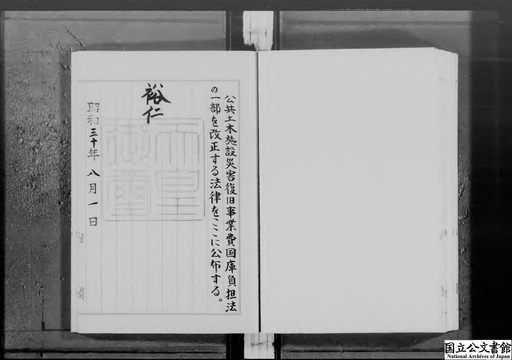 公共土木施設災害復旧事業費国庫負担法
の一部を改正する法律をここに公布する。
裕仁
天皇
御璽
昭和三十年八月一日
国立公文書館
National Archives of Japan